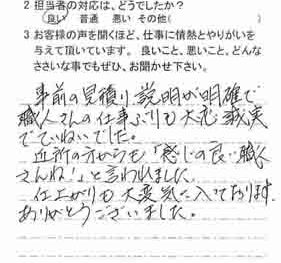 2 担当者の対応は、どうでしたか？
良い 普通 悪い その他( )
3 お客様の声を聞くほど、仕事に情熱とやりがいを
与えて頂いています。良いこと、悪いこと、どんな
ささいな事でもぜひ、お聞かせ下さい。
事前の見積り、説明が明確で
職人さんの仕事ぶりも大変誠実
でていねいでした。
近所の方からも「感じの良い職人
さんね！」と言われました。
仕上がりも大変気に入っております。
ありがとうございました。